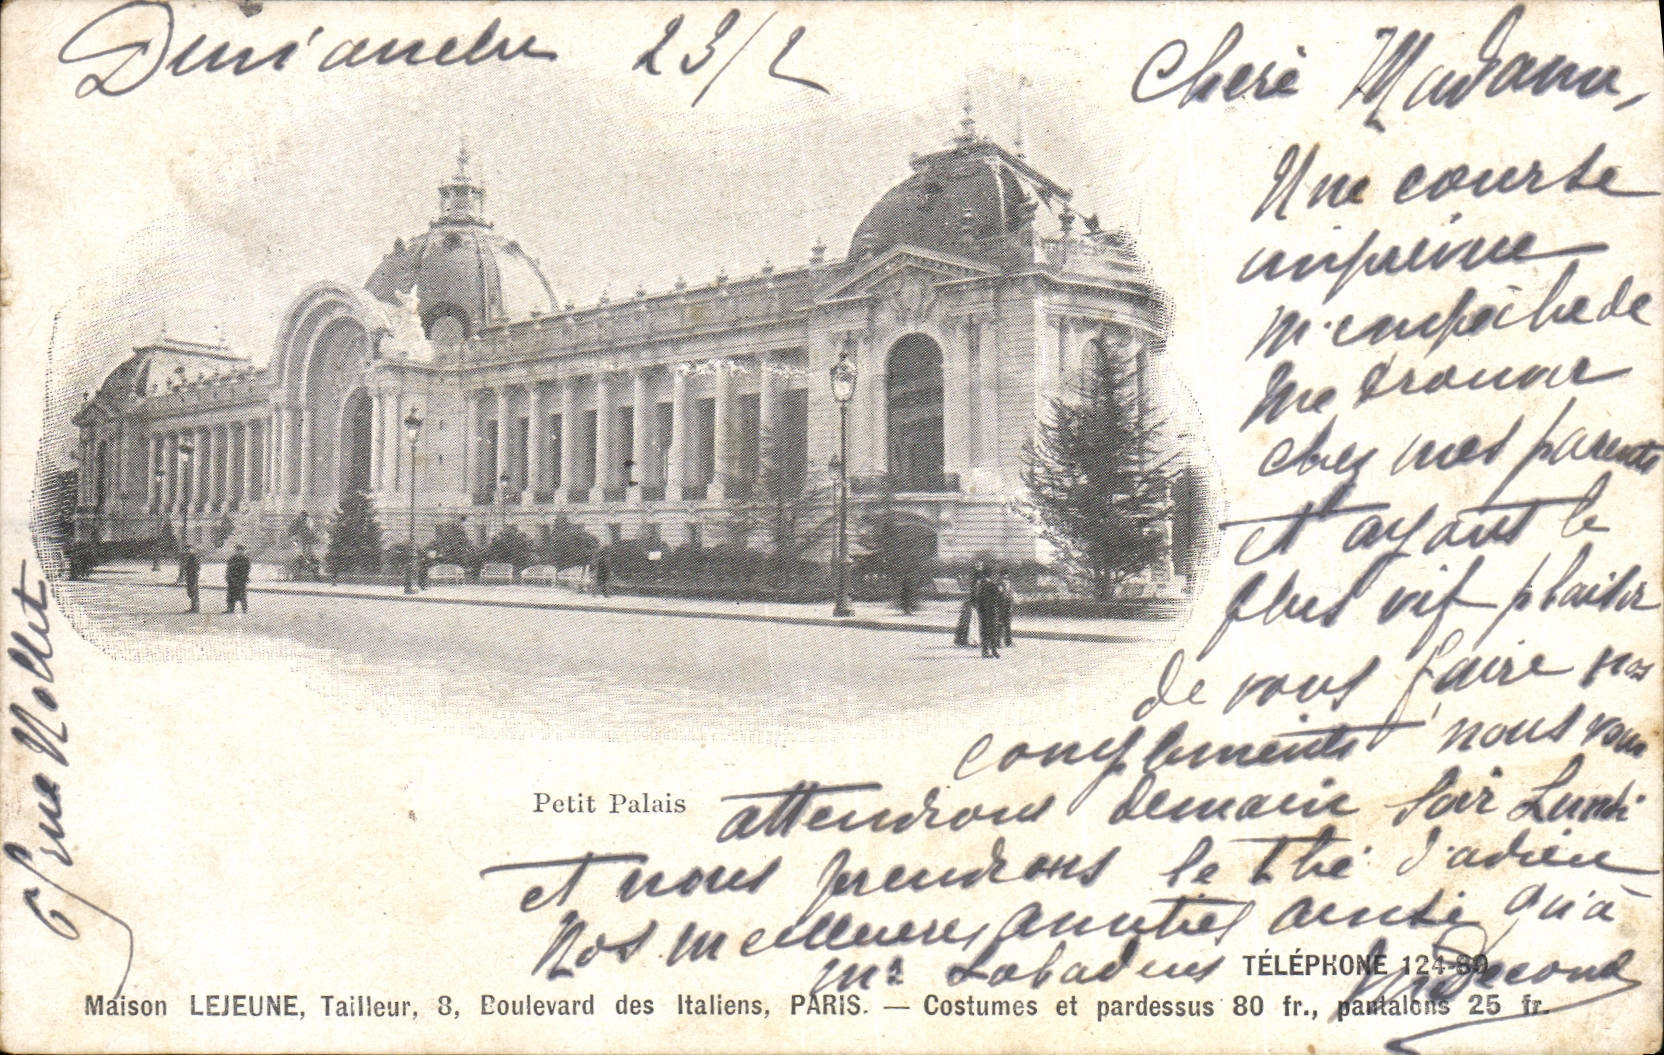 Dimanche 23/2
Chère Madame,
Une courte
imprévue
m'empêche de
me trouver
chez mes parents
et ayant le
plus vif plaisir
de vous faire nos
compliments nous vous
attendrons demain soir Lundi
et nous prendrons le thé d'adieu
Nos meilleures amitiés ainsi qu'à
Mr
6 rue Nollet
Petit Palais
TÉLÉPHONE 124-80
Maison LEJEUNE, Tailleur, 8, Boulevard des Italiens, PARIS. — Costumes et pardessus 80 fr., pantalons 25 fr.